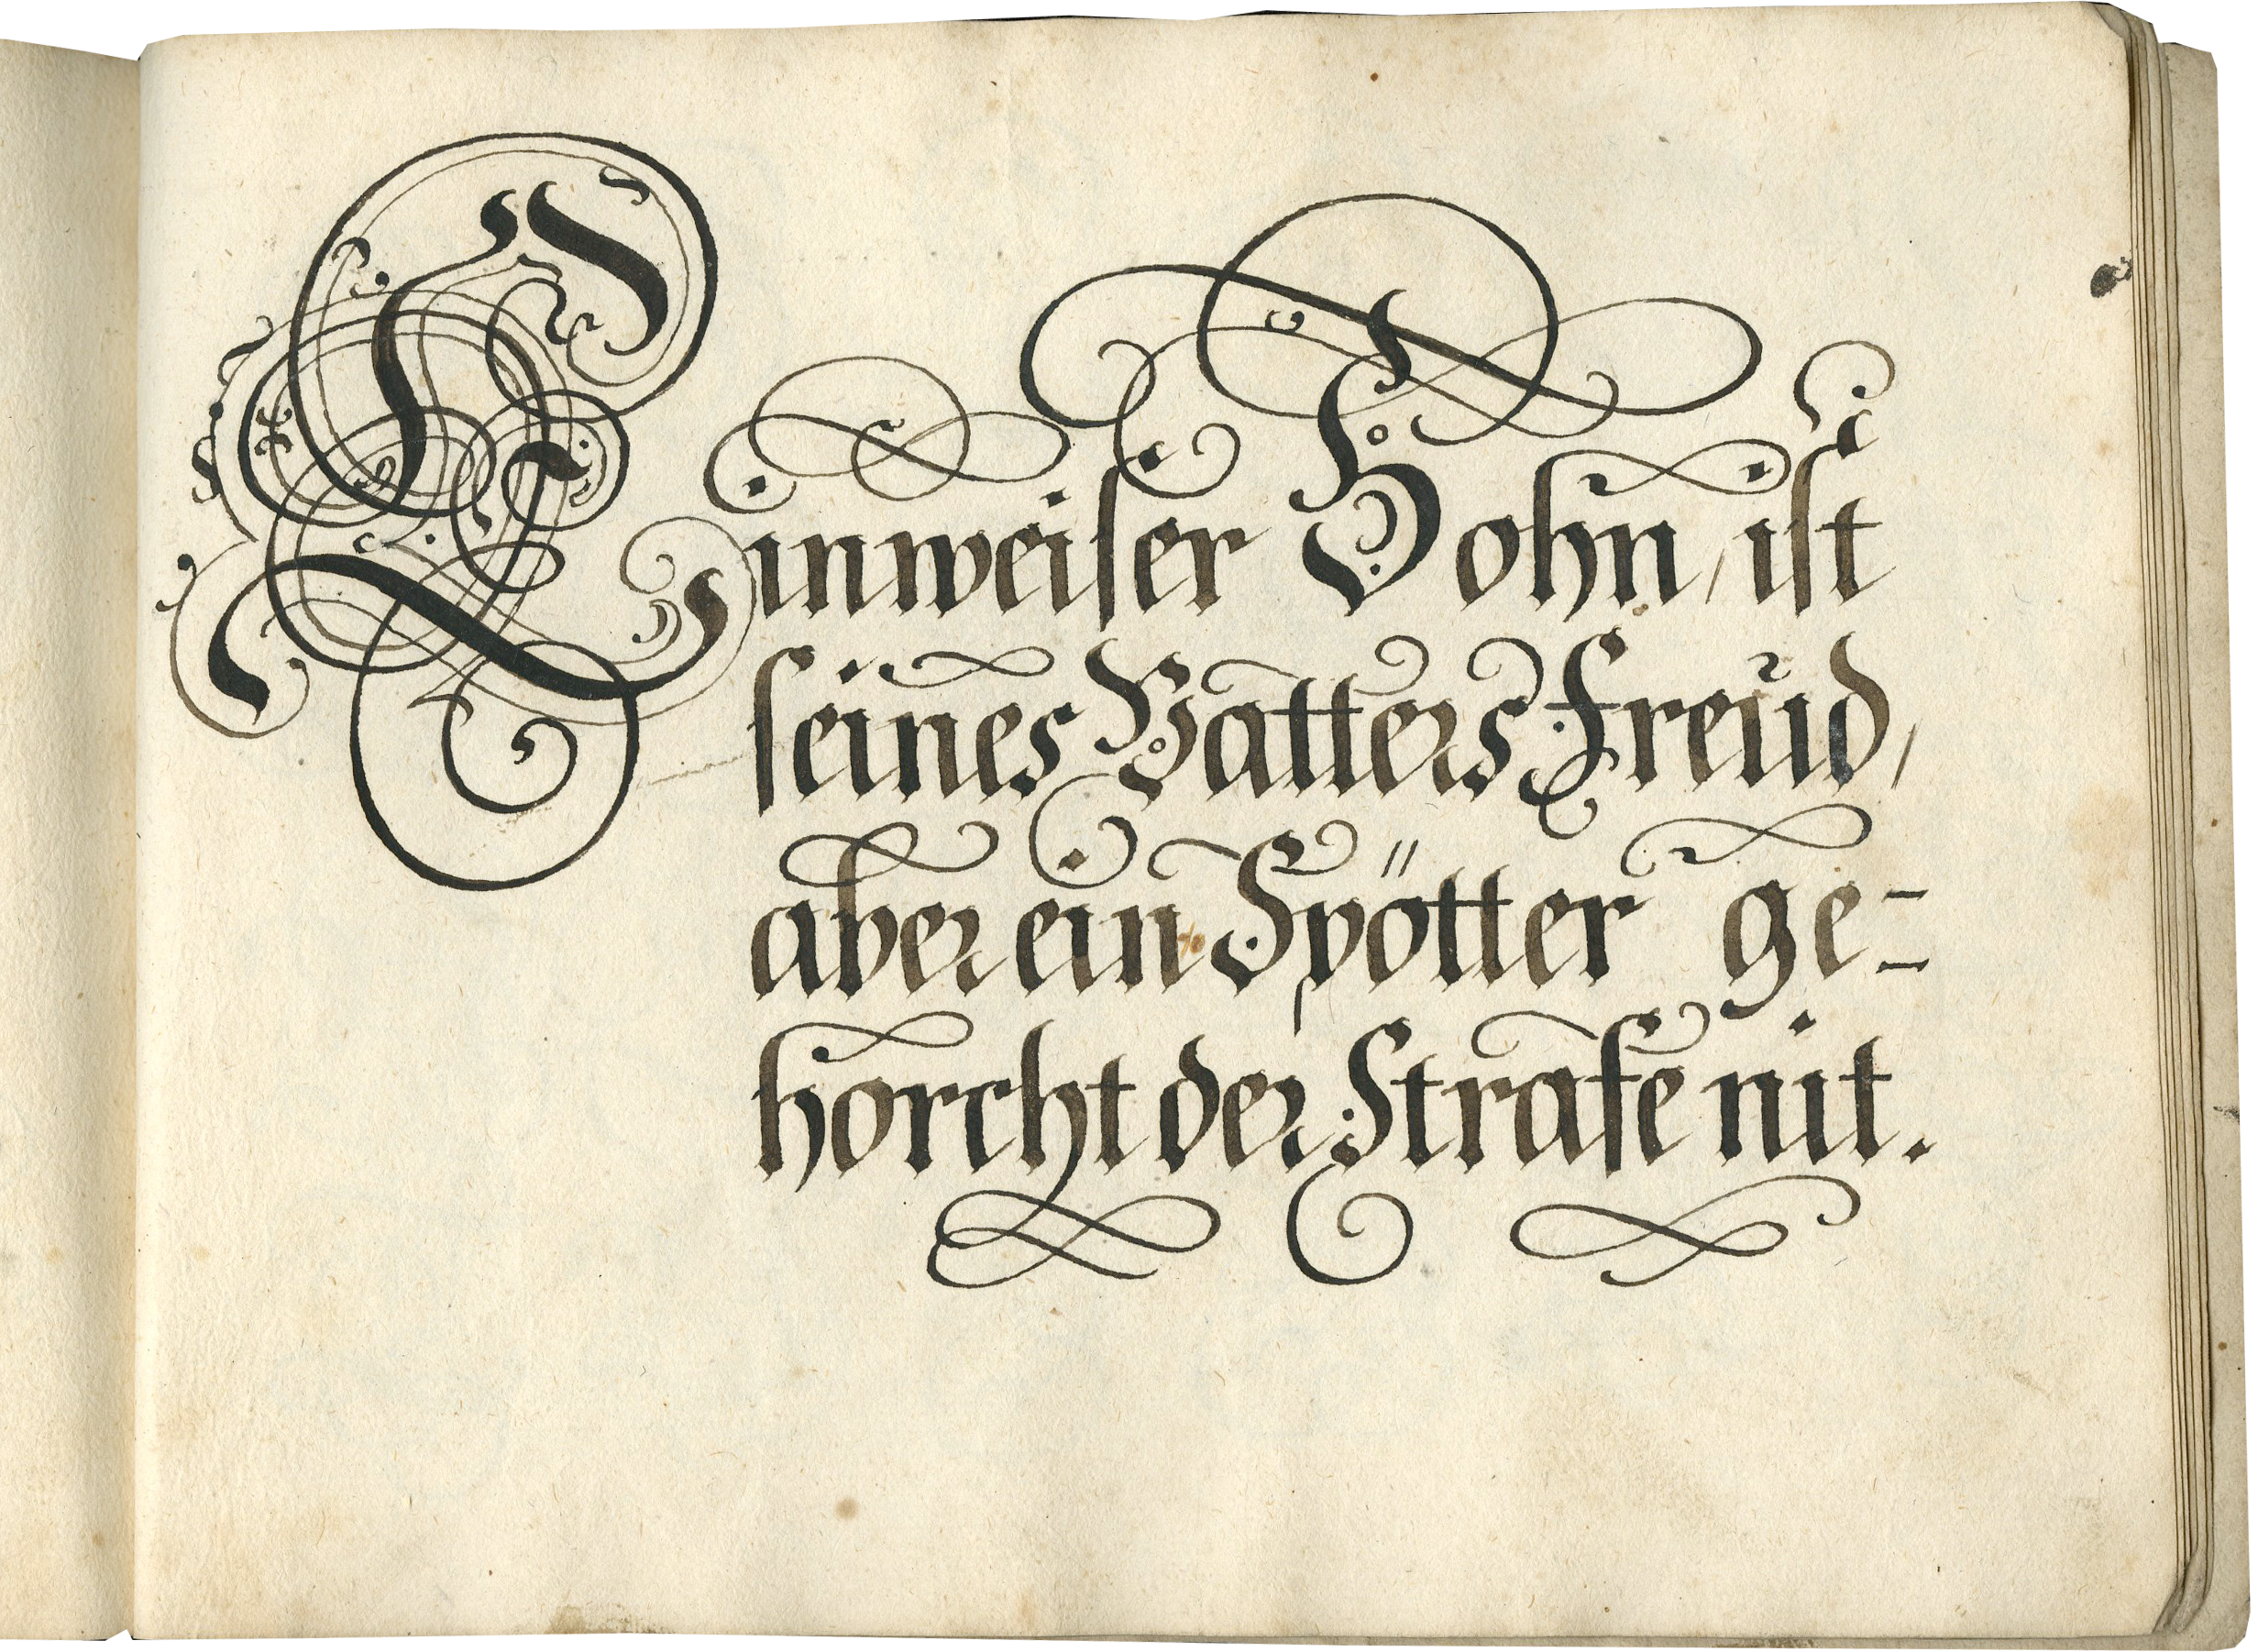 Ein weiser Sohn / ist
seines Vatters Freud /
aber ein Spötter ge=
horcht der Strafe nit.